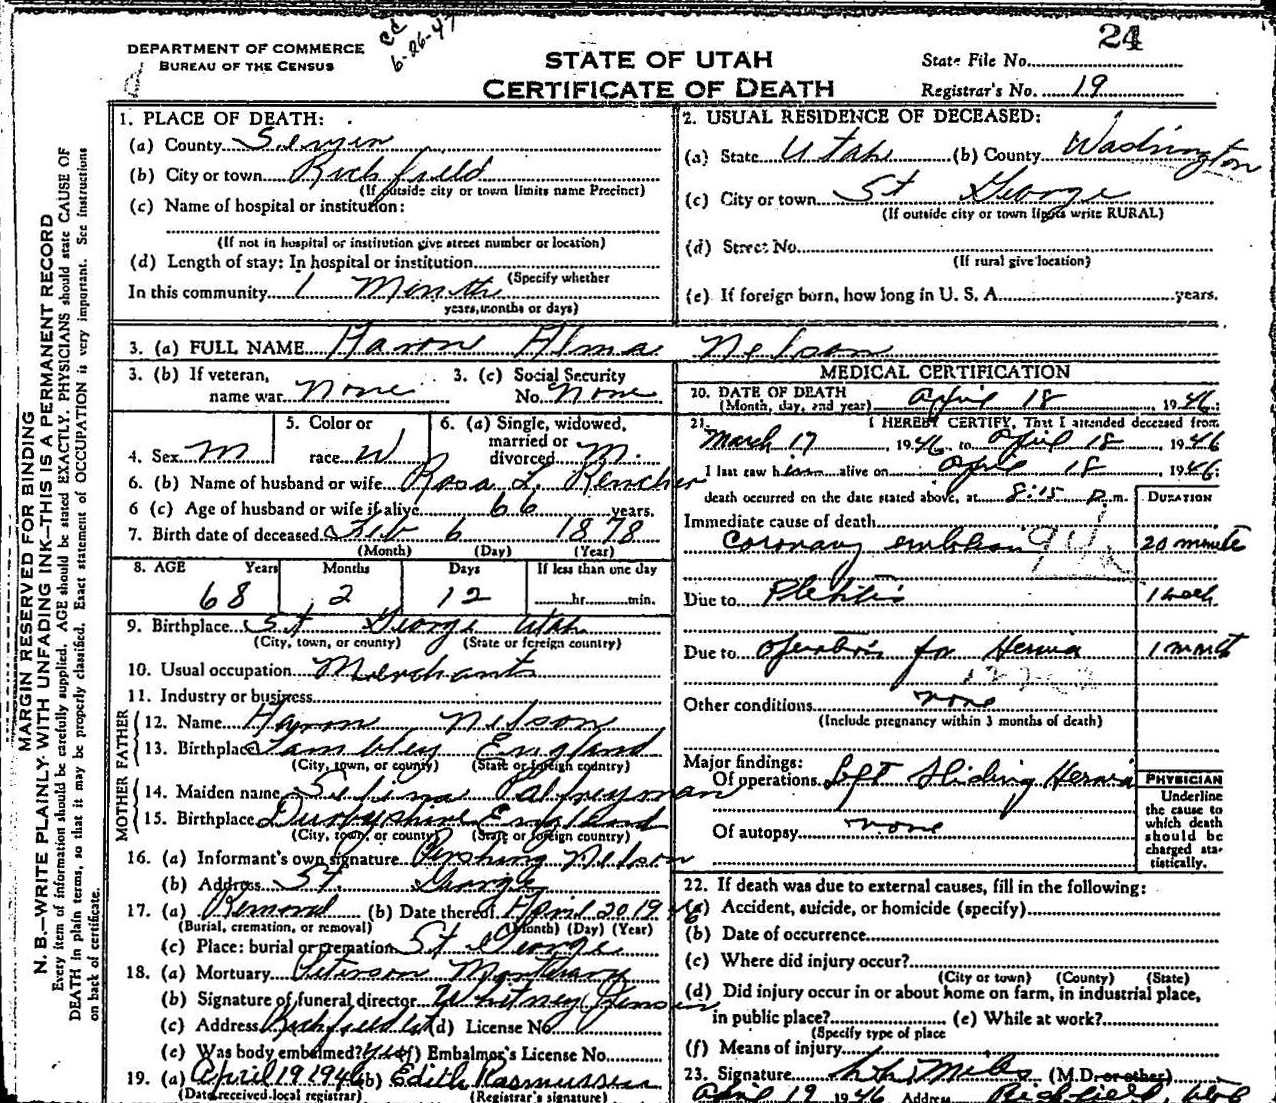 24
cc
6-26-47
DEPARTMENT OF COMMERCE
BUREAU OF THE CENSUS
STATE OF UTAH
CERTIFICATE OF DEATH
State File No.
Registrar's No. 19
MARGIN RESERVED FOR BINDING
N. B.—WRITE PLAINLY WITH UNFADING INK—THIS IS A PERMANENT RECORD
Every item of information should be carefully supplied. AGE should be stated EXACTLY. PHYSICIANS should state CAUSE OF
DEATH in plain terms, so that it may be properly classified. Exact statement of OCCUPATION is very important. See instructions
on back of certificate.
1. PLACE OF DEATH:
(a) County Sevier
(b) City or town Richfield
(If outside city or town limits name Precinct)
(c) Name of hospital or institution:
(If not in hospital or institution give street number or location)
(d) Length of stay: In hospital or institution
(Specify whether
In this community 1 Month
years, months or days)
2. USUAL RESIDENCE OF DECEASED:
(a) State Utah (b) County Washington
(c) City or town St George
(If outside city or town limits write RURAL)
(d) Street No.
(If rural give location)
(e) If foreign born, how long in U. S. A. years.
3. (a) FULL NAME Aaron Alma Nelson
3. (b) If veteran, name war None 3. (c) Social Security No. None
4. Sex M 5. Color or race W 6. (a) Single, widowed, married or divorced M.
6. (b) Name of husband or wife Rosa L. Kencher
6 (c) Age of husband or wife if alive 66 years.
7. Birth date of deceased Feb 6 1878
(Month) (Day) (Year)
8. AGE Years Months Days If less than one day
68 2 12 hr. min.
9. Birthplace St George Utah
(City, town, or county) (State or foreign country)
10. Usual occupation Merchant
11. Industry or business
FATHER
12. Name Aaron Nelson
13. Birthplace England
(City, town, or county) (State or foreign country)
MOTHER
14. Maiden name Selina Palfreyman
15. Birthplace Durbyshire England
(City, town, or county) (State or foreign country)
16. (a) Informant's own signature Pershing Nelson
(b) Address St. George
17. (a) Removal (b) Date thereof April 20 1946
(Burial, cremation, or removal) (Month) (Day) (Year)
(c) Place: burial or cremation St George
18. (a) Mortuary Peterson Mortuary
(b) Signature of funeral director Whitney
(c) Address Richfield Ut (d) License No
(e) Was body embalmed? Yes (f) Embalmer's License No.
19. (a) April 19 1946 (b) Edith Rasmussen
(Date received local registrar) (Registrar's signature)
MEDICAL CERTIFICATION
20. DATE OF DEATH
(Month, day, and year) April 18, 1946:
21. I HEREBY CERTIFY, That I attended deceased from
March 17, 1946 to April 18, 1946
I last saw him alive on April 18, 1946
death occurred on the date stated above, at 8:15 P.m. DURATION
Immediate cause of death
Coronary embolism 20 minute
Due to Plebitis 1 week
Due to Operation for Hernia 1 month
Other conditions none
(Include pregnancy within 3 months of death)
Major findings:
Of operations Left Sliding Hernia
Of autopsy none
PHYSICIAN
Underline
the cause to
which death
should be
charged sta-
tistically.
22. If death was due to external causes, fill in the following:
(a) Accident, suicide, or homicide (specify)
(b) Date of occurrence
(c) Where did injury occur?
(City or town) (County) (State)
(d) Did injury occur in or about home on farm, in industrial place,
in public place? (e) While at work?
(Specify type of place
(f) Means of injury
23. Signature (M.D. or other)
April 19 1946 Address Richfield, Utah